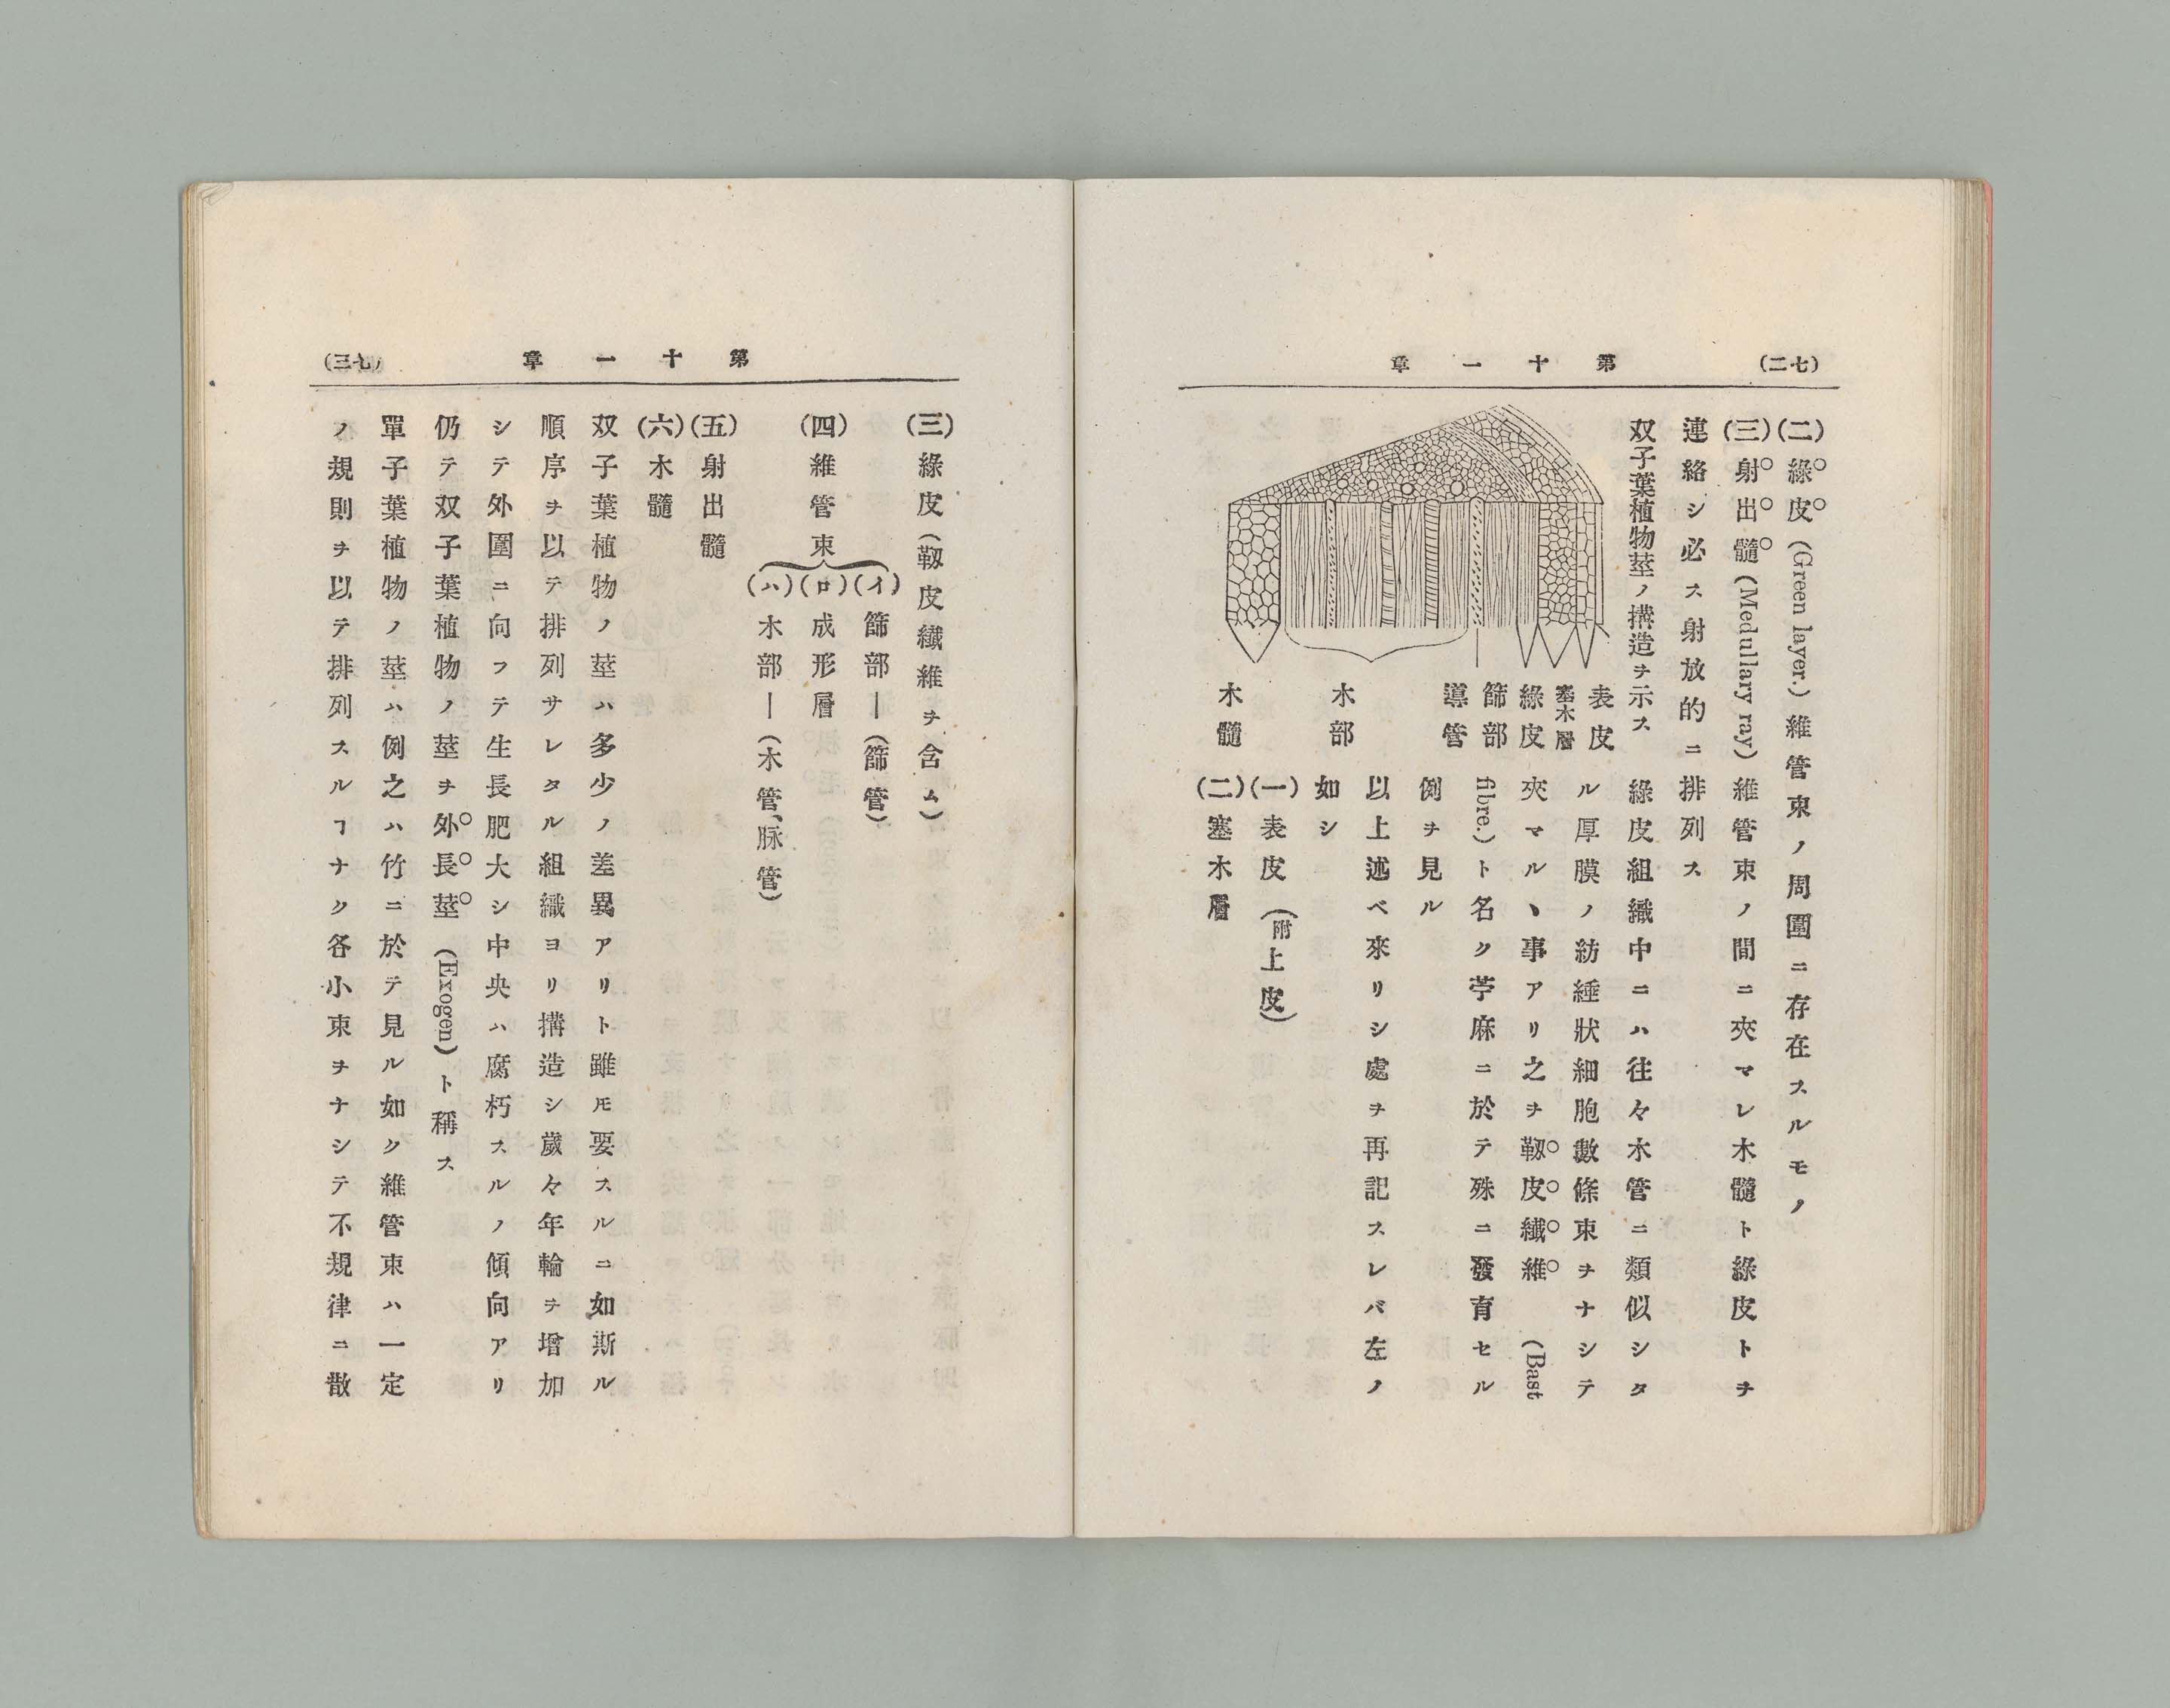 (七二)
第十一章
(二)綠皮(Green layer.)維管束ノ周圍ニ存在スルモノ
(三)射出髓(Medullary ray)維管束ノ間ニ夾マレ木髓ト綠皮トヲ
連絡シ必ス射放的ニ排列ス
双子葉植物莖ノ搆造ヲ示ス
表皮
塞木層
綠皮
篩部
導管
木部
木髓
綠皮組織中ニハ往々木管ニ類似シタ
ル厚膜ノ紡綞狀細胞數條束ヲナシテ
夾マルヽ事アリ之ヲ靱皮纎維(Bast
fibre.)ト名ク苧麻ニ於テ殊ニ發育セル
例ヲ見ル
以上述ベ來リシ處ヲ再記スレバ左ノ
如シ
(一)表皮(附上皮)
(二)塞木層
第十一章
(七三)
(三)綠皮(靱皮纎維ヲ含ム)
(四)維管束
(イ)篩部—(篩管)
(ロ)成形層
(ハ)木部—(木管、脉管)
(五)射出髓
(六)木髓
双子葉植物ノ莖ハ多少ノ差異アリト雖モ要スルニ如斯ル
順序ヲ以テ排列サレタル組織ヨリ搆造シ歲々年輪ヲ增加
シテ外圍ニ向フテ生長肥大シ中央ハ腐朽スルノ傾向アリ
仍テ双子葉植物ノ莖ヲ外長莖(Exogen)ト稱ス
單子葉植物ノ莖ハ例之ハ竹ニ於テ見ル如ク維管束ハ一定
ノ規則ヲ以テ排列スルヿナク各小束ヲナシテ不規律ニ散